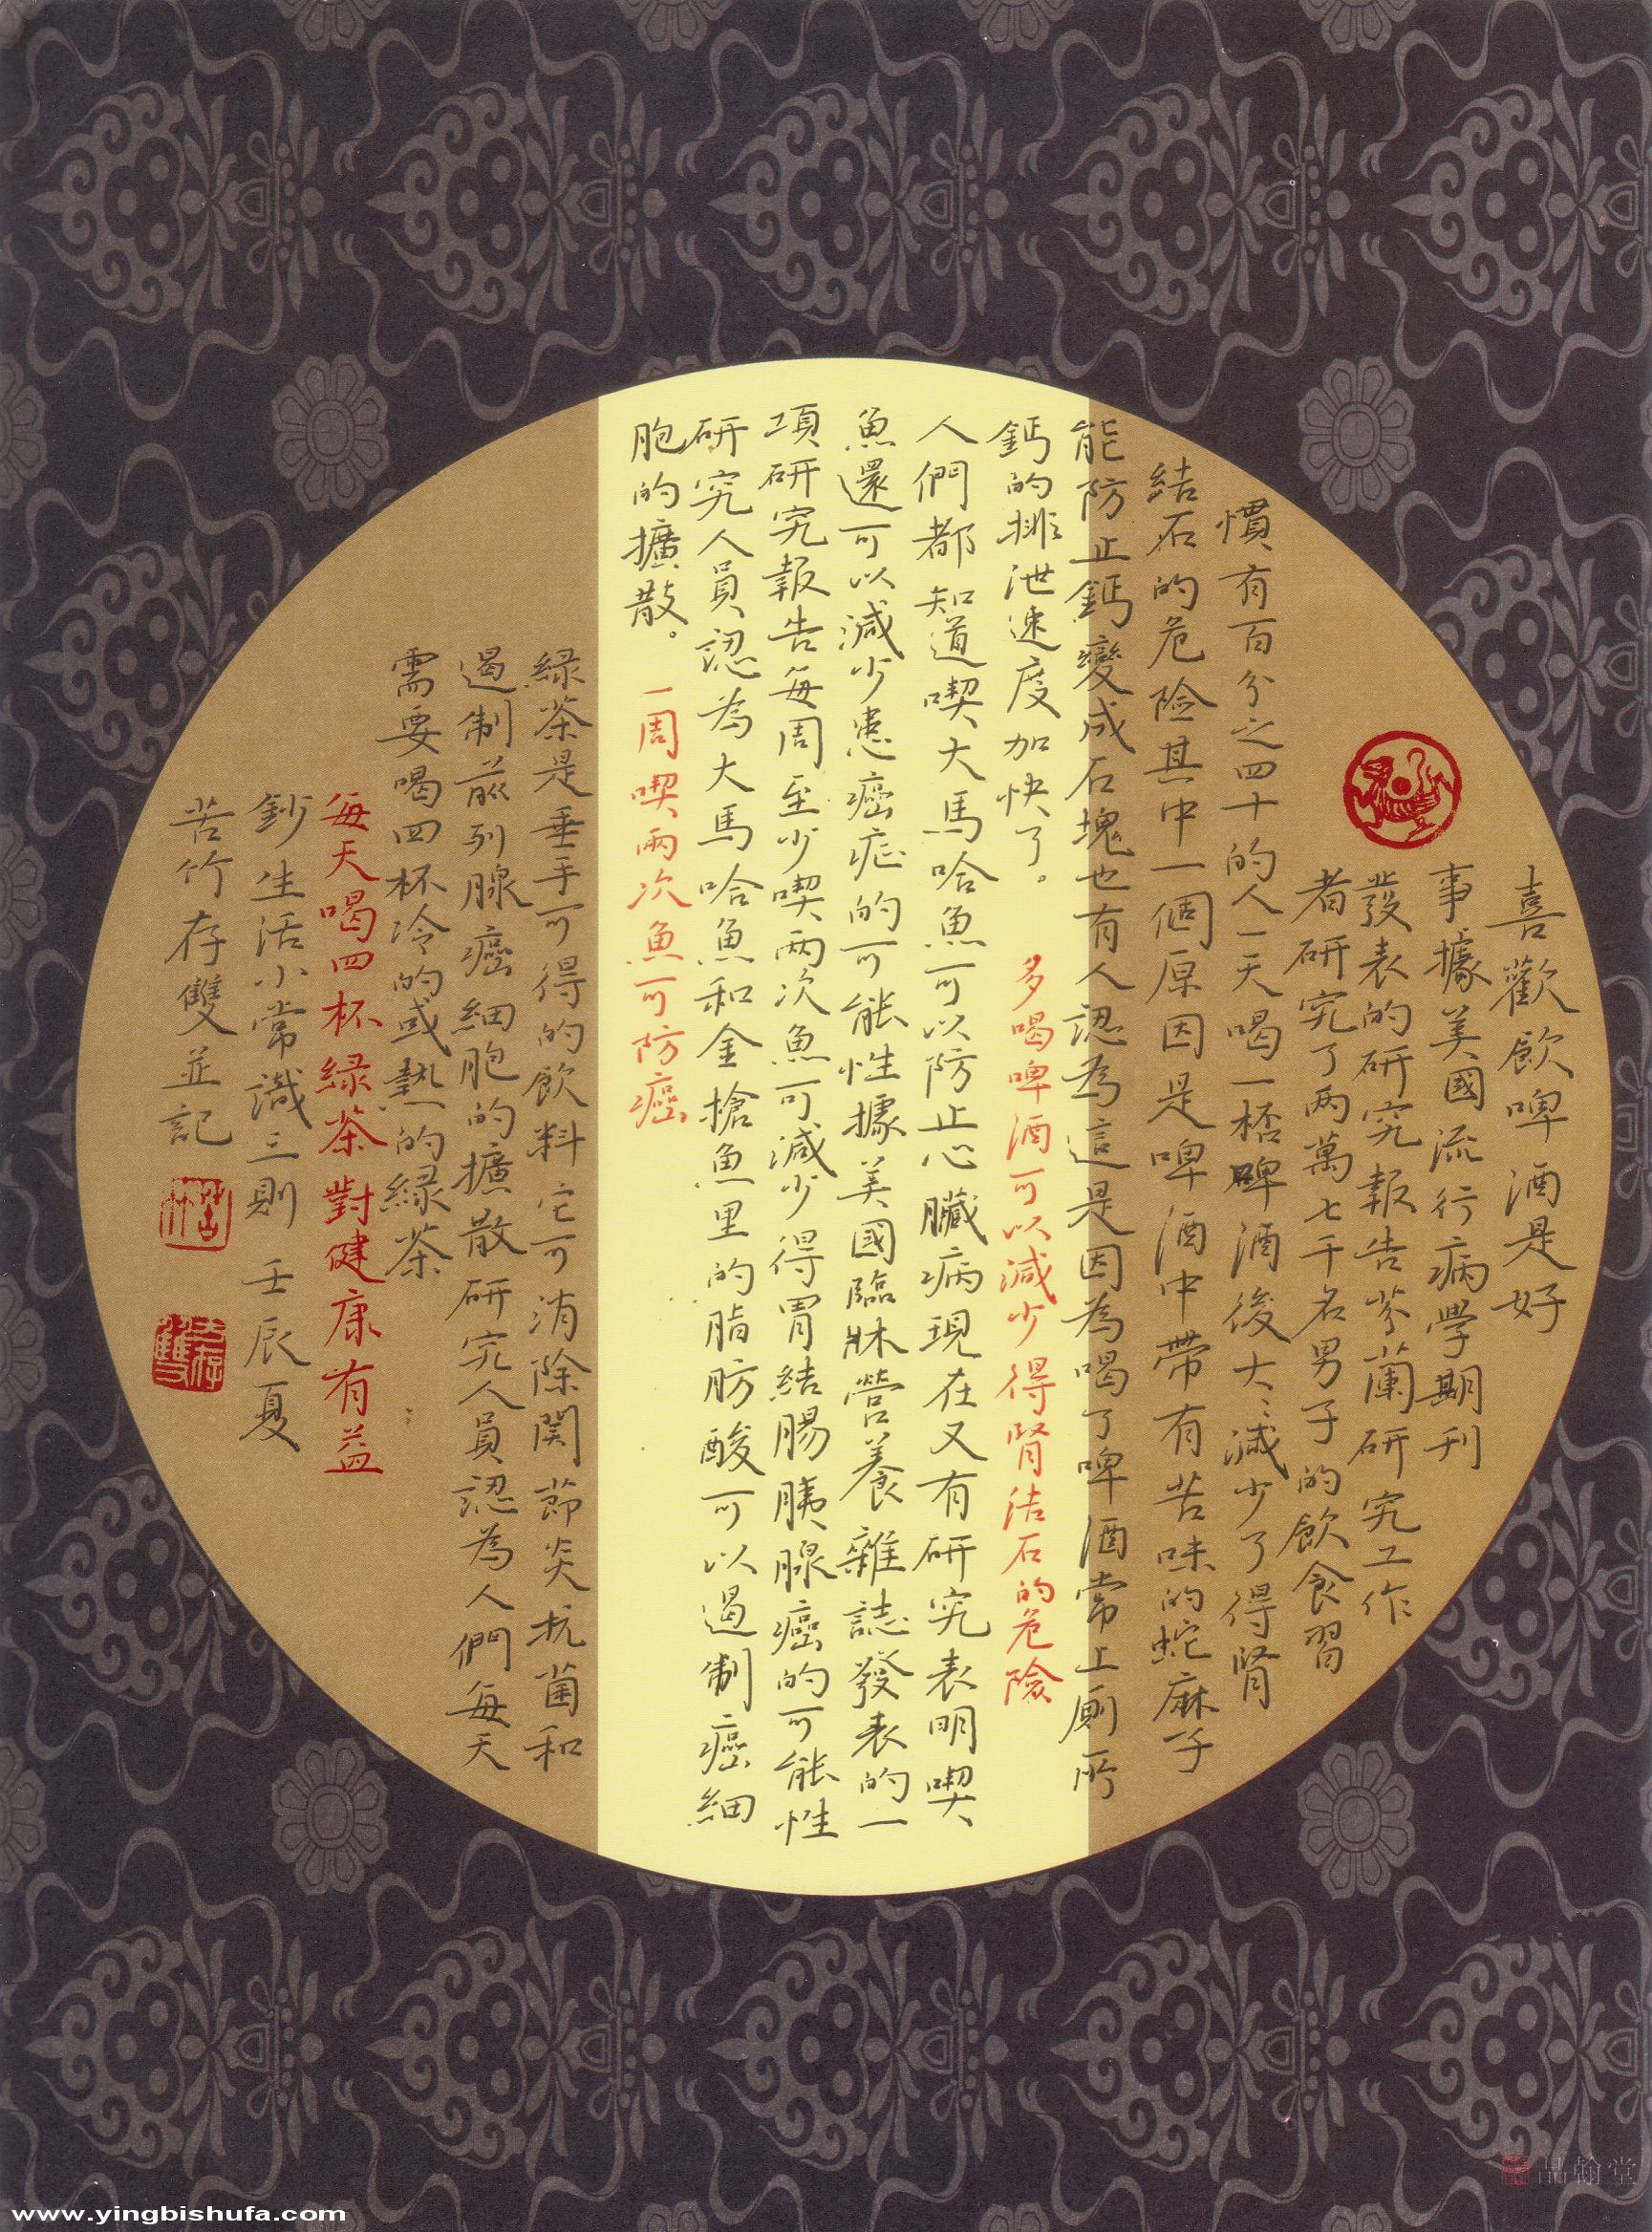 喜歡飲啤酒是好
事據美國流行病學期刊
發表的研究報告芬蘭研究工作
者研究了两萬七千名男子的飲食習
慣有百分之四十的人一天喝一桮啤酒後大大減少了得腎
結石的危险其中一個原因是啤酒中帶有苦味的蛇麻子
能防止鈣變成石塊也有人認為這是因為喝了啤酒常上厠所
鈣的排泄速度加快了。 多喝啤酒可以減少得腎结石的危險
人們都知道喫大馬哈魚可以防止心臟病現在又有研究表明喫
魚還可以減少患癌症的可能性據美國臨牀營養雜誌發表的一
項研究報告每周至少喫两次魚可減少得胃結腸胰腺癌的可能性
研究人員認為大馬哈魚和金槍魚里的脂肪酸可以遏制癌細
胞的擴散。 一周喫兩次魚可防癌
緑茶是垂手可得的飲料它可消除関節炎抗菌和
遏制前列腺癌細胞的擴散研究人員認為人們每天
需要喝四杯冷的或熱的緑茶
每天喝四杯緑茶對健康有益
鈔生活小常識三則 壬辰夏
苦竹存雙並記
品翰堂
www.yingbishufa.com